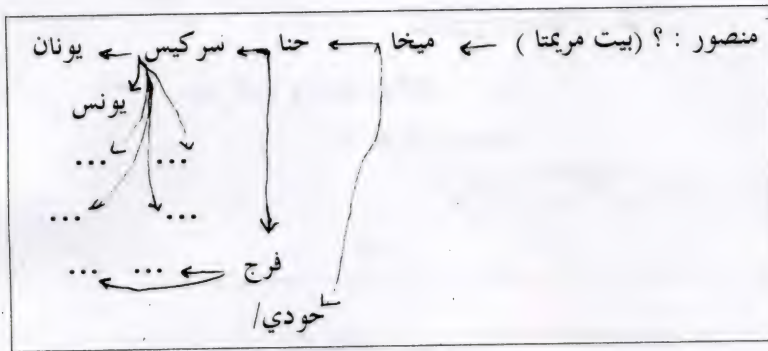 منصور : ؟ (بيت مريمتا ) ← ميخا ← حنا ← سركيس ← يونان
يونس
... ...
... ...
فرج ← ... ...
حودي/